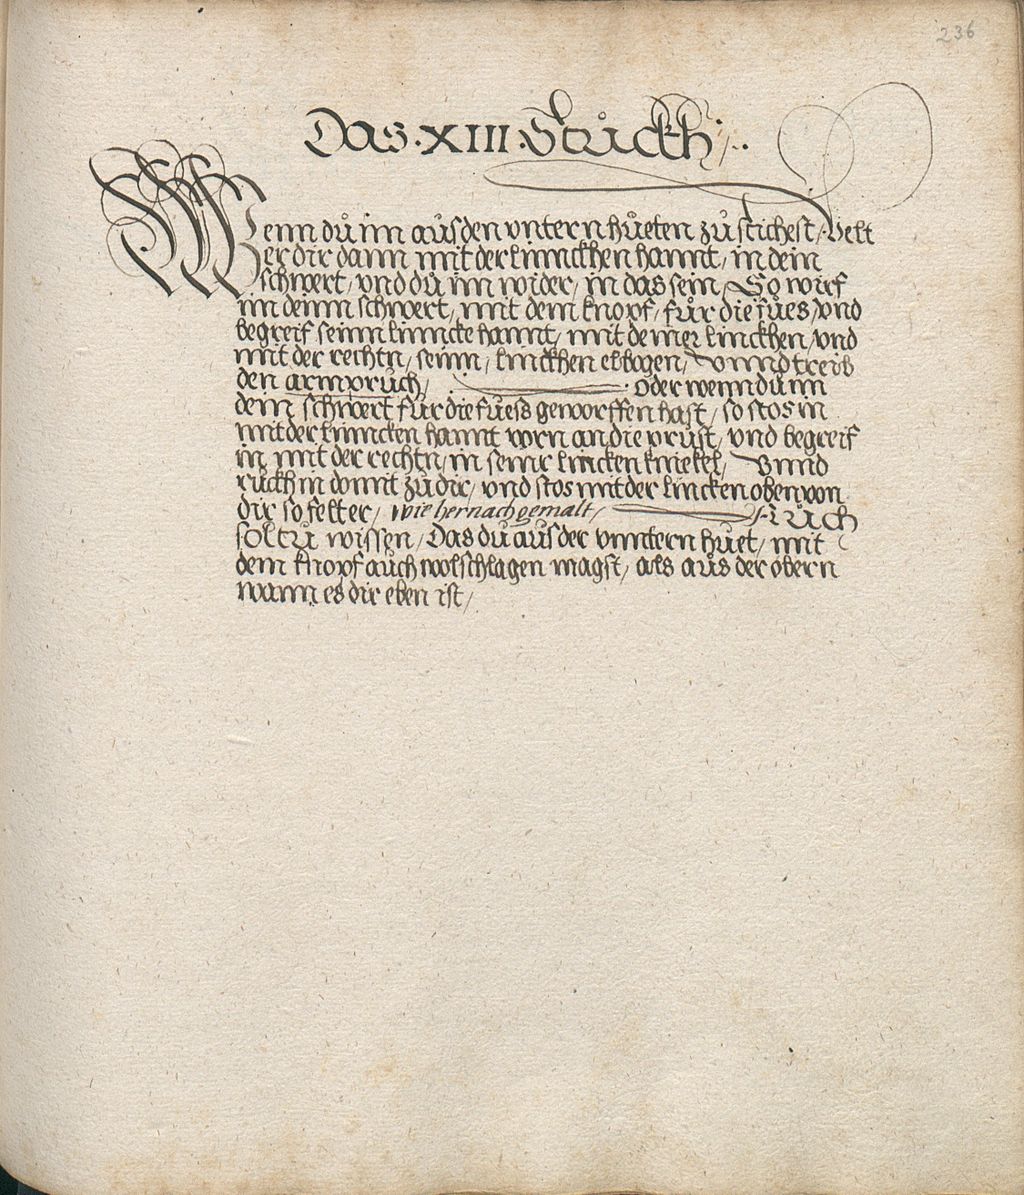 236
Das · XIII · Stůckh /.
Wenn dů im aůs den vntern hůeten zů stichest /. velt
er dir dann mit der linnckhen hannt, in dein
schwert, vnd dů im wider, in das sein, So wirf
im deinn schwert, mit dem knopf, fůr die fůes, vnd
begreif seinn linncke hannt, mit deiner Linckhen, vnd
mit der rechtn, seinn, linckhen elbogen, vnnd treib
den armprůch, oder wenn dů im
dein schwert fůr die fůess geworffen hast, so stos in
mit der linncken hannt vorn an die průst, vnd begreif
in mit der rechtn, in seinr lincken kniekel, vnnd
růckh in domit zů dir, vnd stos mit der lincken oben von
dir so felt er, wie hernach gemalt, Aůch
soltu wissen, Das dů aůs der vnntern hůet, mit
dem knopf aůch wol schlagen magst, als aůs der obern
wann es dir eben ist,